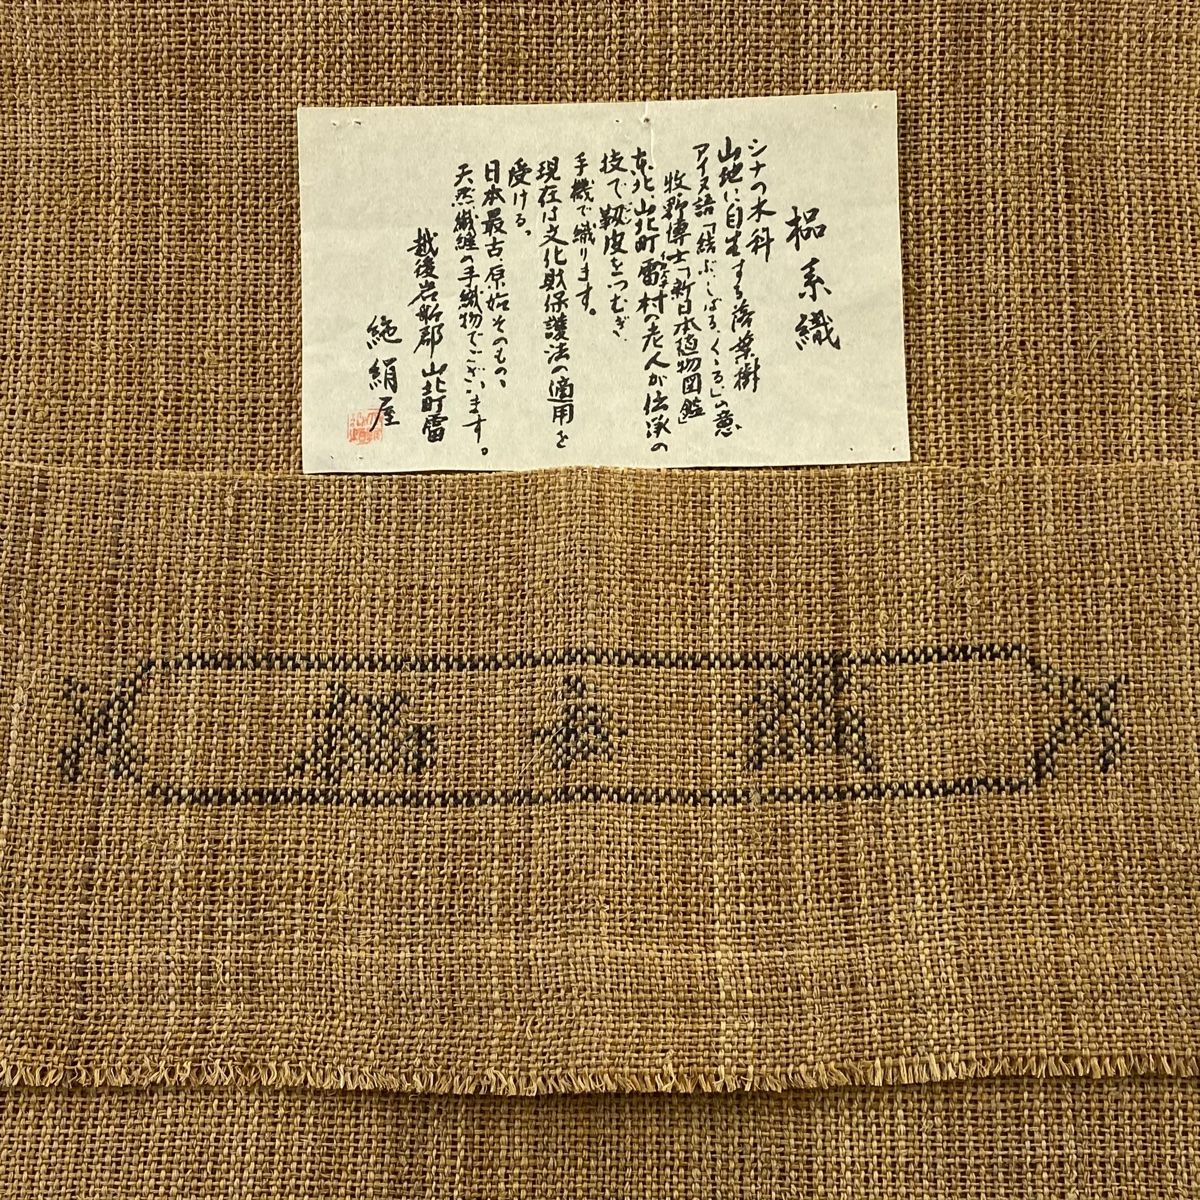 榀糸織
シナの木科
山地に自生する落葉樹
アイヌ語「結ぶ、しばる、くくる」の意
牧野博士「新日本植物図鑑」
東北 山北町 雷村の老人が伝承の
技で靱皮をつむぎ
手機で織ります。
現在は文化財保護法の適用を
受ける。
日本最古、原始そのもの、
天然繊維の手織物でございます。
越後岩船郡 山北町雷
絁絹屋